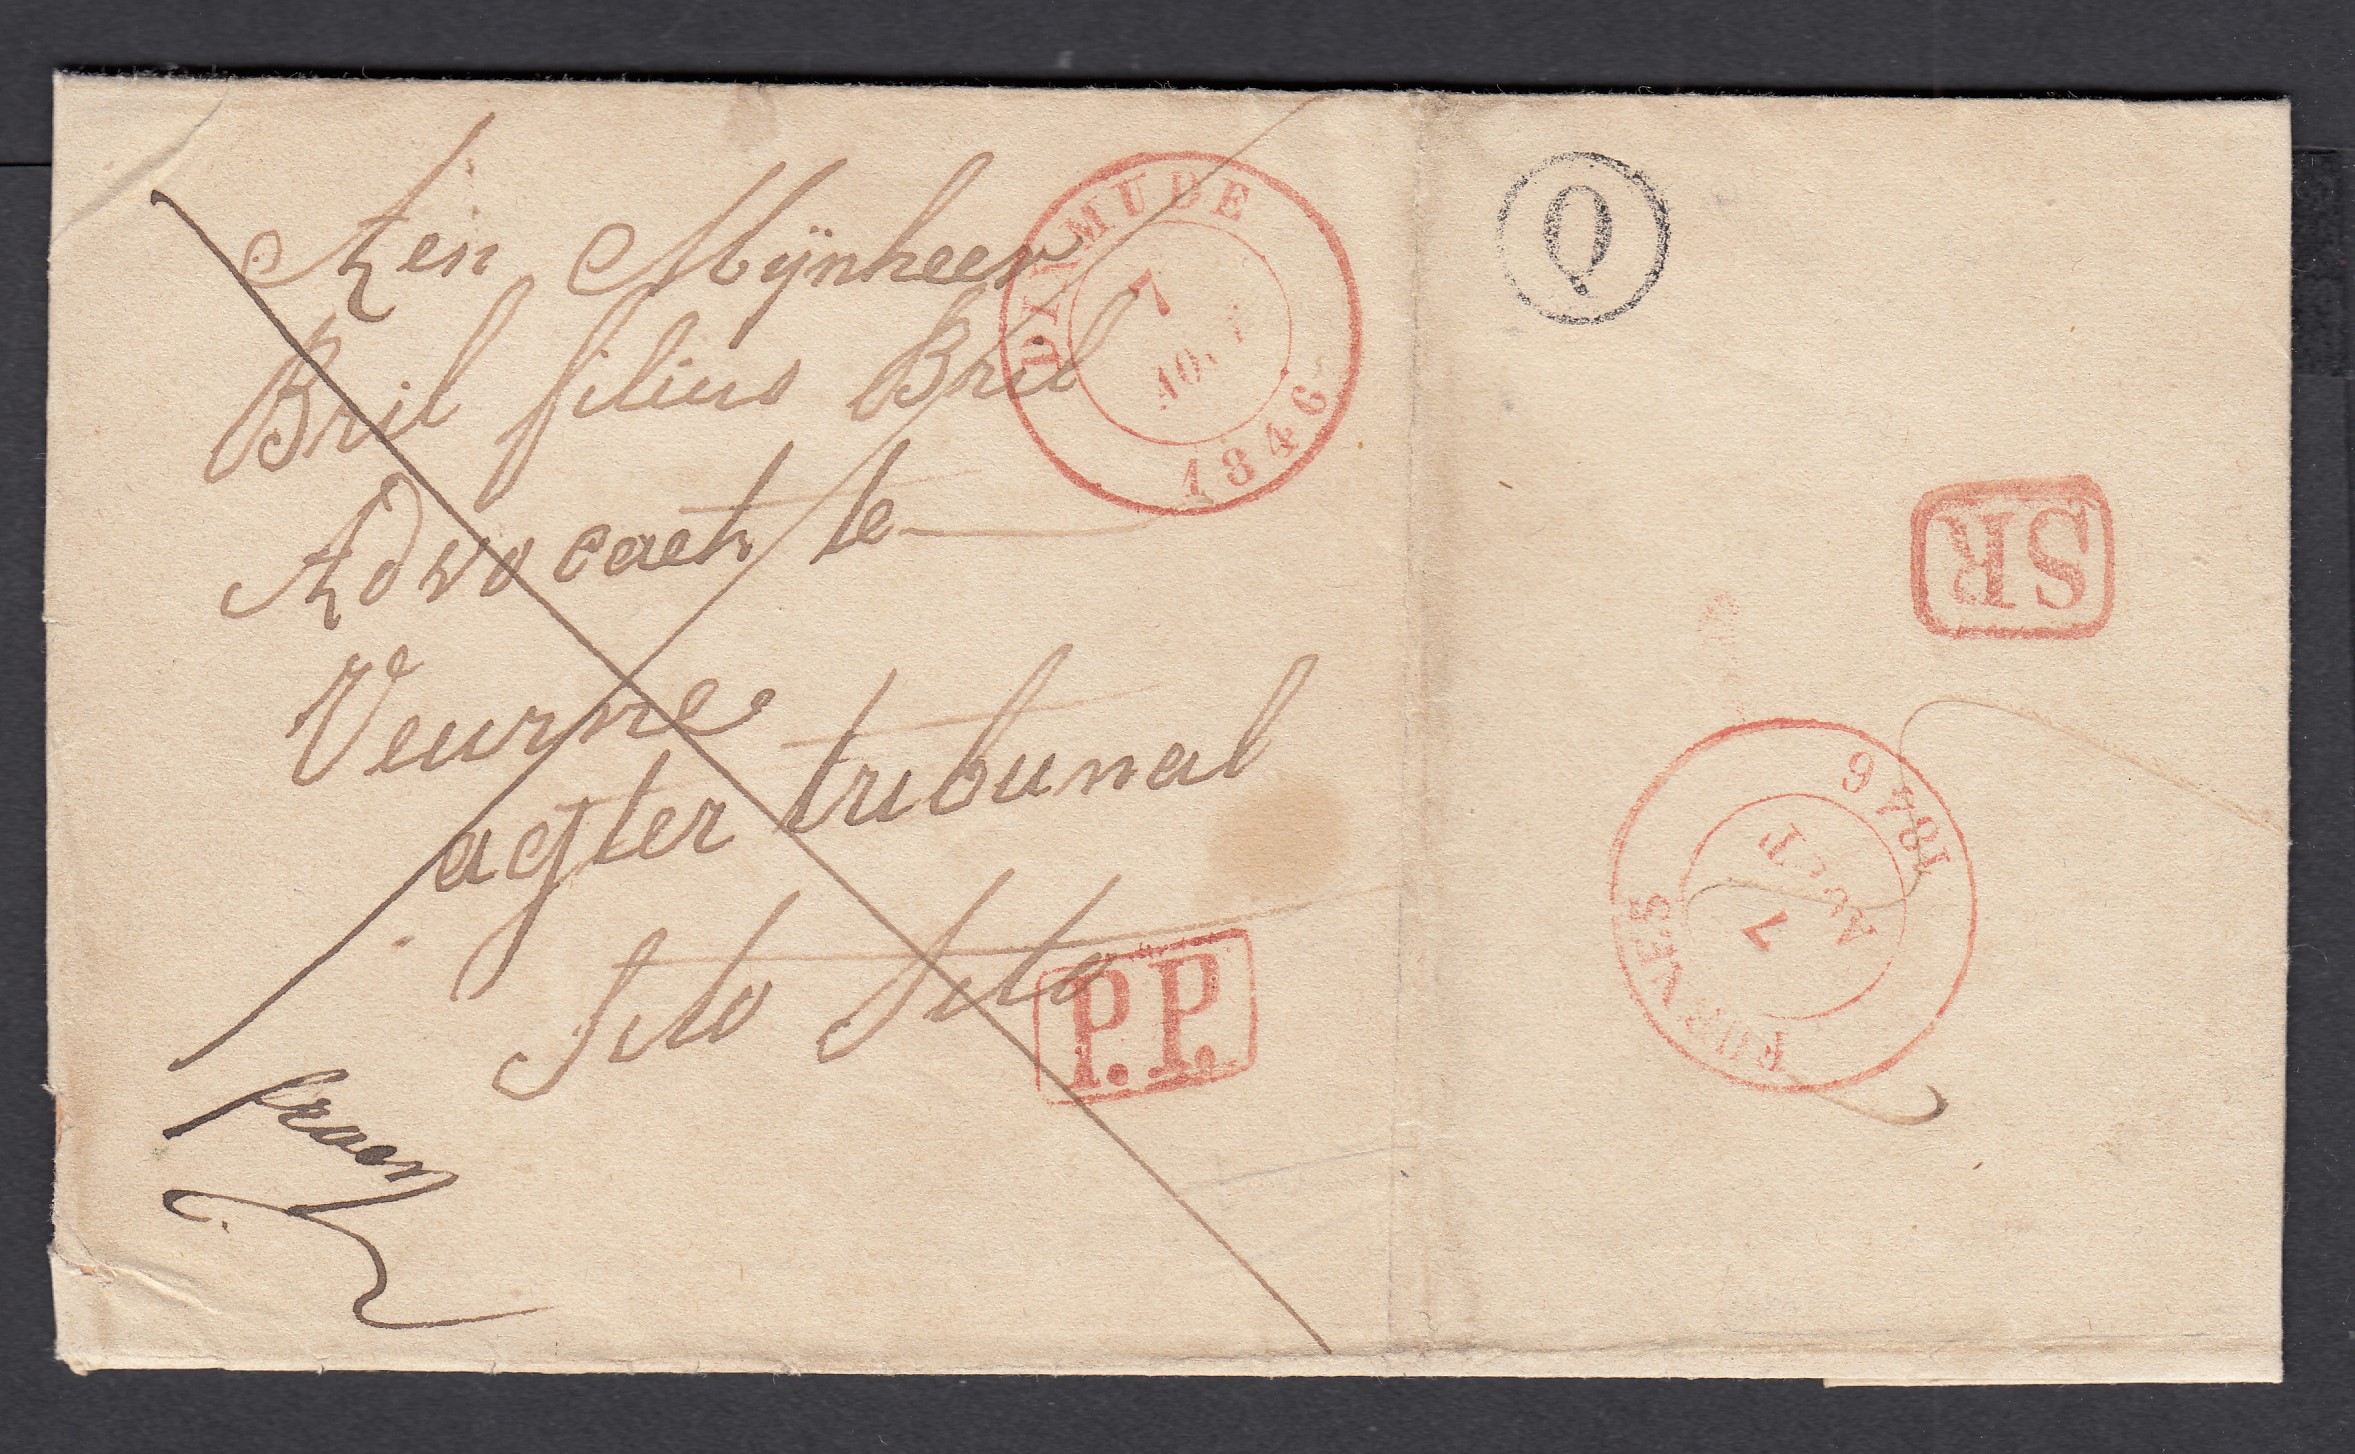 Aen Mijnheer
Bril filius Bril
Advocaet te
Veurne
agter tribunal
Sito Sito
DIXMUDE
7
AOUT
1846
P.P.
Q
SR
FURNES
7
AOUT
1846